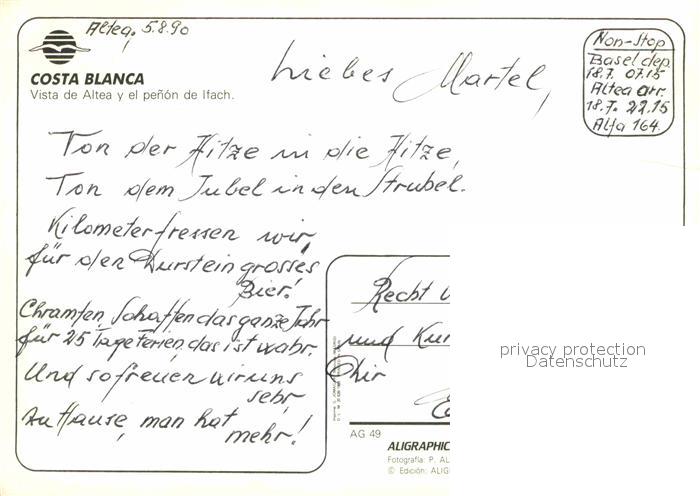 Altea, 5.8.90
COSTA BLANCA
Vista de Altea y el peñón de Ifach.
Liebes Martel,
Non-Stop
Basel dep.
18.7. 07.15
Altea arr.
18.7. 22.15
Alfa 164.
Von der Hitze in die Hitze,
Von dem Jubel in den Strubel.
Kilometerfressen wir,
für den Durst ein grosses
Bier!
Chrampfen, Schaffen das ganze Jahr
für 25 Tage Ferien, das ist wahr.
Und so freuen wir uns
sehr
zu Hause, man hat
mehr!
Recht
und
Dir
AG 49
ALIGRAPHIC
Fotografía: P. AL
© Edición: ALIG
privacy protection
Datenschutz